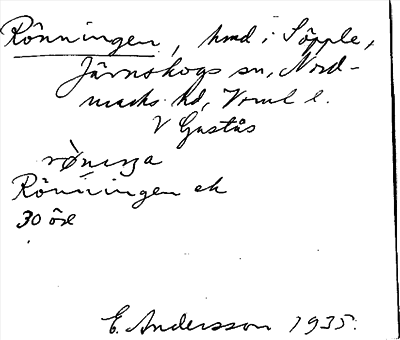 Rönningen, hmd i Söpple,
Järnskogs sn, Nord-
marks hd, Vrml l.
V Gustås
Rönningen ek
30 öre
E. Andersson 1935.